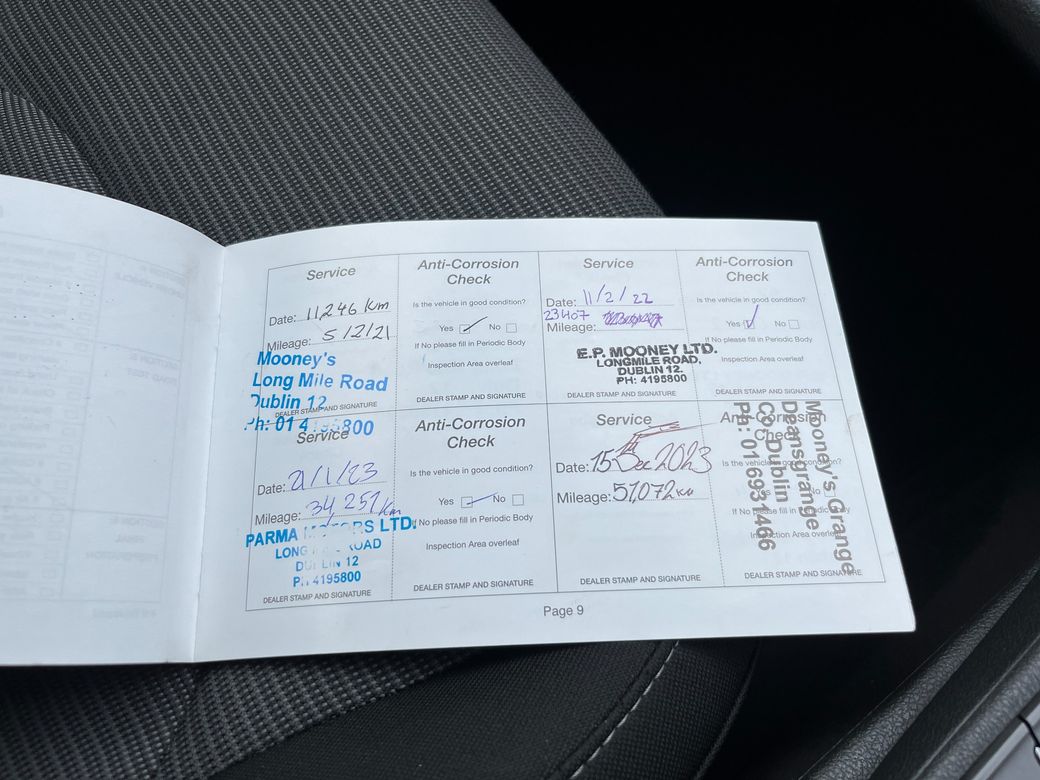 Service
Date: 11,246 Km
Mileage: 5/2/21
Mooney's
Long Mile Road
Dublin 12
DEALER STAMP AND SIGNATURE
Ph: 01 4195800
Anti-Corrosion
Check
Is the vehicle in good condition?
Yes No
If No please fill in Periodic Body
Inspection Area overleaf
DEALER STAMP AND SIGNATURE
Service
Date: 11/2/22
23407
Mileage:
E.P. MOONEY LTD.
LONGMILE ROAD,
DUBLIN 12.
PH: 4195800
DEALER STAMP AND SIGNATURE
Anti-Corrosion
Check
Is the vehicle in good condition?
Yes No
If No please fill in Periodic Body
Inspection Area overleaf
DEALER STAMP AND SIGNATURE
Service
Date: 21/1/23
Mileage: 34 257 Km
PARMA MOTORS LTD.
LONG MILE ROAD
DUBLIN 12
PH 4195800
DEALER STAMP AND SIGNATURE
Anti-Corrosion
Check
Is the vehicle in good condition?
Yes No
If No please fill in Periodic Body
Inspection Area overleaf
DEALER STAMP AND SIGNATURE
Service
Date: 15 Dec 2023
Mileage: 51,072 km
DEALER STAMP AND SIGNATURE
Anti-Corrosion
Check
Is the vehicle in good condition?
Yes No
If No please fill in Periodic Body
Inspection Area overleaf
DEALER STAMP AND SIGNATURE
Mooney's Grange
Deansgrange
Co. Dublin
Ph: 01 6931466
Page 9